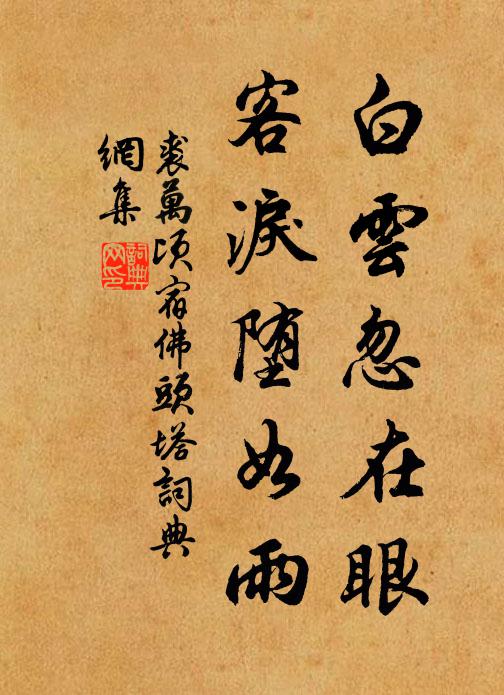 白雲忽在眼
客淚墮如雨
裘萬頃宿佛頭塔詞典
網集
詞典網印